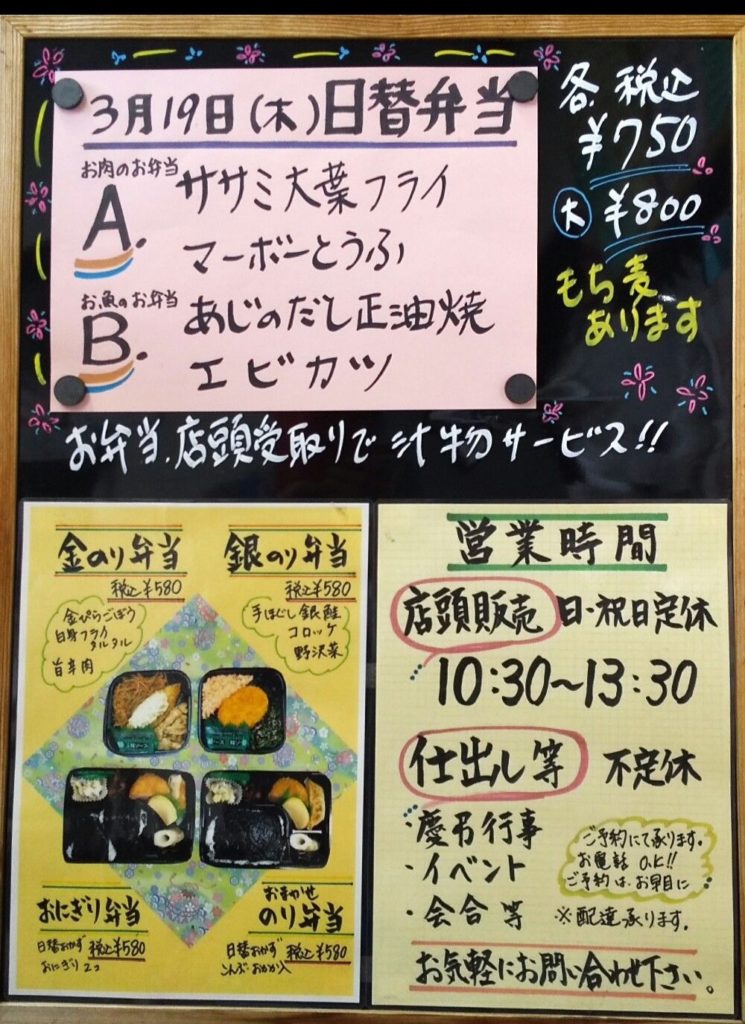 3月19日(木)日替弁当
お肉のお弁当
A.
ササミ大葉フライ
マーボーとうふ
お魚のお弁当
B.
あじのだし正油焼
エビカツ
各 税込
¥750
大 ¥800
もち麦
あります
お弁当、店頭受取りで 汁物サービス!!
金のり弁当
税込¥580
金ぴらごぼう
白身フライ
タルタル
旨辛肉
銀のり弁当
税込¥580
手ほぐし銀鮭
コロッケ
野沢菜
おにぎり弁当
日替おかず 税込¥580
おにぎり 2コ
おまかせ
のり弁当
日替おかず 税込¥580
こんぶ・おかか入
営業時間
店頭販売 日・祝日定休
10:30~13:30
仕出し等 不定休
・慶弔行事
・イベント
・会合 等
ご予約にて承ります。
お電話 O.K!!
ご予約は、お早目に
※配達承ります。
お気軽にお問い合わせ下さい。